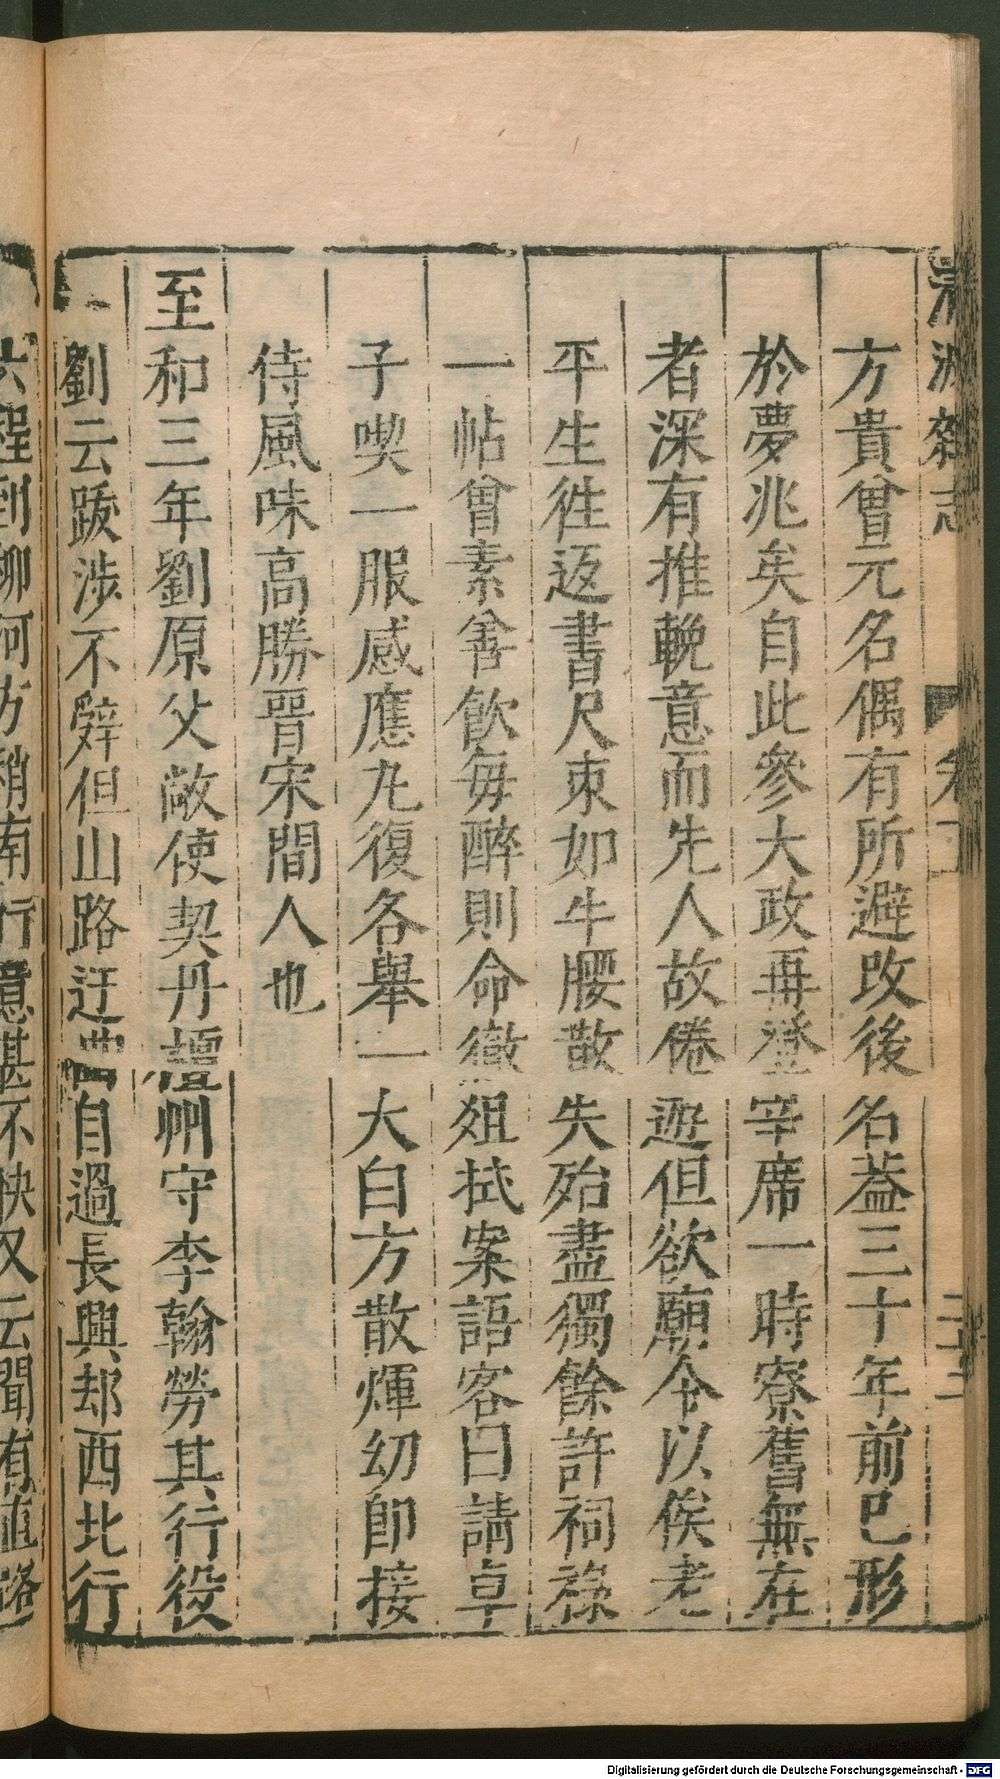 清波雜志 卷下 二十二
方貴曾元名偶有所避改後名葢三十年前已形
於夢兆矣自此參大政再登宰席一時寮舊無在
者深有推輓意而先人故倦遊但欲廟令以俟老
平生徃返書尺束如牛腰散失殆盡獨餘許祠祿
一帖曾素善飲每醉則命徹俎拭案語客曰請卓
子喫一服感應九復各舉一大白方散煇幼卽接
侍風味高勝晉宋間人也
至和三年劉原父敞使契丹檀州守李翰勞其行役
劉云跋涉不辭但山路迂曲自過長興却西北行
六程到柳河方稍南行意甚不快又云聞有直路
Digitalisierung gefördert durch die Deutsche Forschungsgemeinschaft - DFG